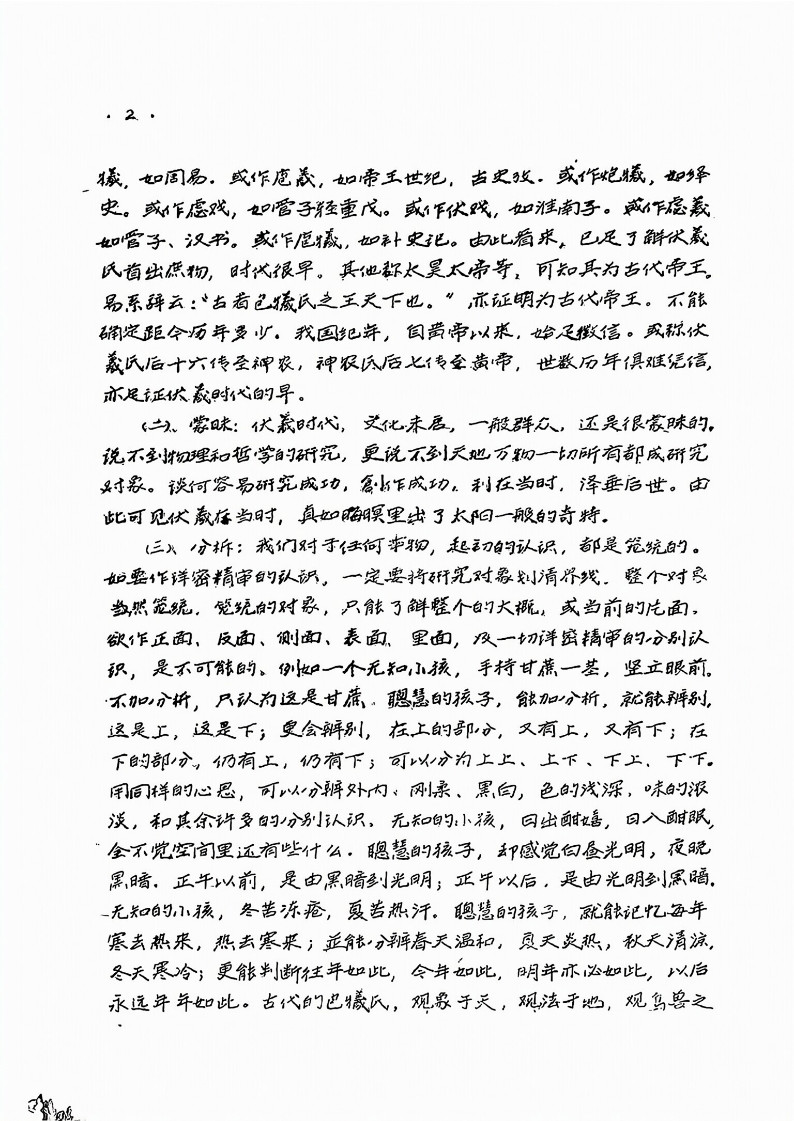 · 2 ·
犧，如周易．或作虙羲，如帝王世纪，古史攷．或作炮犧，如绎
史。或作虙戏，如管子轻重戊。或作伏戏，如淮南子。或作虙羲
如管子、汉书。或作庖犧，如补史记。由此看来，已足了解伏羲
氏首出庶物，时代很早。其他称太昊太帝等，可知其为古代帝王。
易系辞云：“古者包犧氏之王天下也。”亦证明为古代帝王。不能
确定距今历年多少．我国纪年，自黄帝以来，始足徵信。或称伏
羲氏后十六传至神农，神农氏后七传至黄帝，世数历年俱难凭信，
亦足证伏羲时代的早。
（二）、蒙昧：伏羲时代，文化未启，一般群众，还是很蒙昧的。
说不到物理和哲学的研究，更说不到天地万物一切所有都成研究
对象。谈何容易研究成功，創作成功，利在当时，泽垂后世。由
此可见伏羲在当时，真如晦暝里出了太阳一般的奇特。
（三）、分析：我们对于任何事物，起初的认识，都是笼统的。
如要作详密精审的认识，一定要将研究对象划清界线．整个对象
当然笼统．笼统的对象，只能了解整个的大概，或当前的片面．
欲作正面、反面、侧面、表面、里面，及一切详密精审的分别认
识，是不可能的、例如一个无知小孩，手持甘蔗一茎，坚立眼前。
不加分析，只认为这是甘蔗．聰慧的孩子，能加分析，就能辨别，
这是上，这是下；更会辨别，在上的部分，又有上，又有下；在
下的部分，仍有上，仍有下；可以分为上上、上下、下上、下下。
用同样的心思，可以分辨外内、刚柔、黑白，色的浅深，味的浓
淡，和其余许多的分别认识．无知的小孩，日出酣嬉，日入酣眠，
全不觉空间里还有些什么．聰慧的孩子，却感觉白昼光明，夜晚
黑暗．正午以前，是由黑暗到光明；正午以后，是由光明到黑暗．
无知的小孩，冬苦冻疮，夏苦热汗．聰慧的孩子，就能记忆每年
寒去热来，热去寒来；並能分辨春天温和，夏天炎热，秋天清凉，
冬天寒冷；更能判断往年如此，今年如此，明年亦必如此，以后
永远年年如此。古代的包犧氏，观象于天，观法于地，观鸟兽之